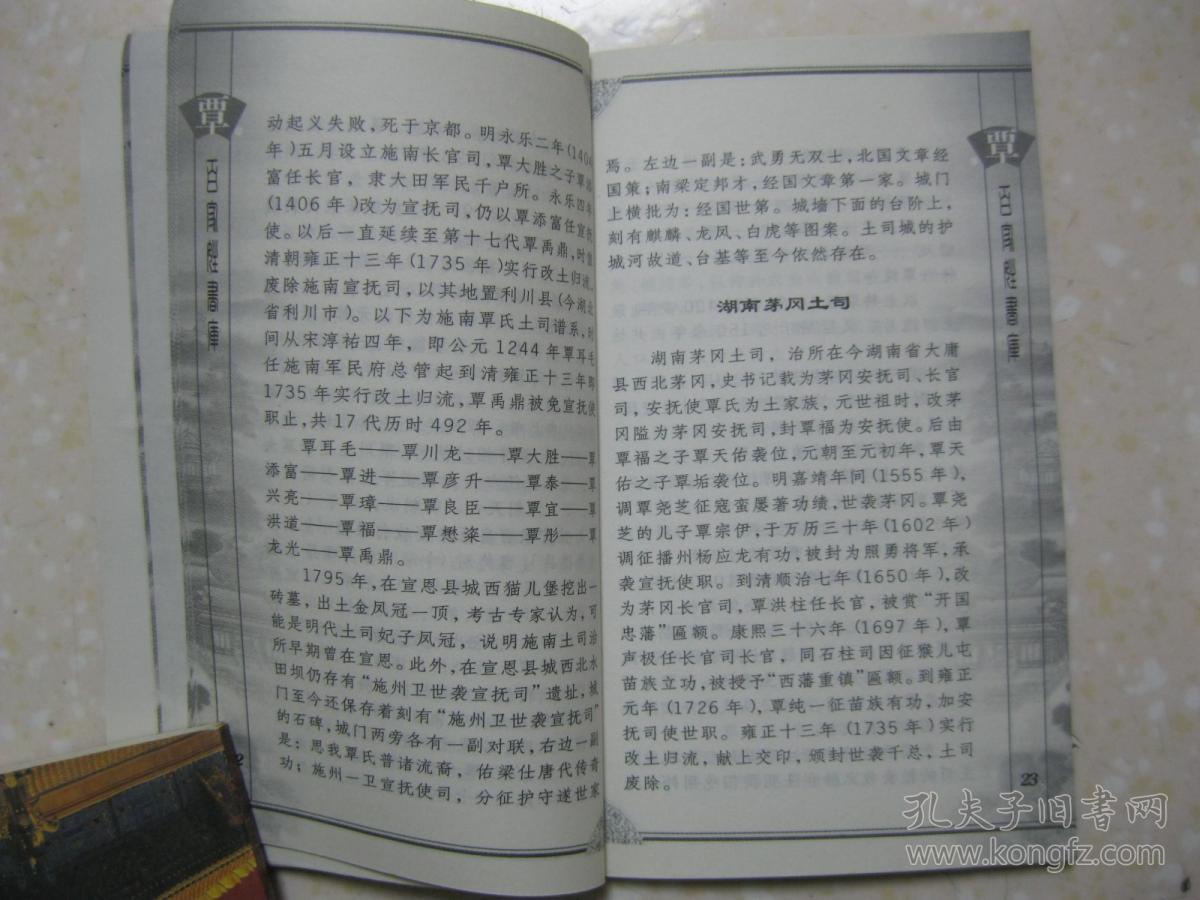 覃
百家姓書庫
动起义失败，死于京都。明永乐二年(1404
年)五月设立施南长官司，覃大胜之子覃添
富任长官，隶大田军民千户所。永乐四年
(1406 年)改为宣抚司，仍以覃添富任宣抚
使。以后一直延续至第十七代覃禹鼎，时值
清朝雍正十三年(1735 年)实行改土归流，
废除施南宣抚司，以其地置利川县(今湖北
省利川市)。以下为施南覃氏土司谱系，时
间从宋淳祐四年，即公元 1244 年覃耳毛
任施南军民府总管起到清雍正十三年即
1735 年实行改土归流，覃禹鼎被免宣抚使
职止，共 17 代历时 492 年。
覃耳毛——覃川龙——覃大胜——覃
添富——覃进——覃彦升——覃泰——覃
兴亮——覃璋——覃良臣——覃宜——覃
洪道——覃福——覃懋粢——覃彤——覃
龙光——覃禹鼎。
1795 年，在宣恩县城西猫儿堡挖出一
砖墓，出土金凤冠一顶，考古专家认为，可
能是明代土司妃子凤冠，说明施南土司治
所早期曾在宣恩。此外，在宣恩县城西北水
田坝仍存有“施州卫世袭宣抚司”遗址，城
门至今还保存着刻有“施州卫世袭宣抚司”
的石碑，城门两旁各有一副对联，右边一副
是：思我覃氏普诸流裔，佑梁仕唐代传奇
功；施州一卫宣抚使司，分征护守遂世家
2
覃
百家姓書庫
焉。左边一副是：武勇无双士，北国文章经
国策；南梁定邦才，经国文章第一家。城门
上横批为：经国世第。城墙下面的台阶上，
刻有麒麟、龙凤、白虎等图案。土司城的护
城河故道、台基等至今依然存在。
湖南茅冈土司
湖南茅冈土司，治所在今湖南省大庸
县西北茅冈，史书记载为茅冈安抚司、长官
司，安抚使覃氏为土家族，元世祖时，改茅
冈隘为茅冈安抚司，封覃福为安抚使。后由
覃福之子覃天佑袭位，元朝至元初年，覃天
佑之子覃垢袭位。明嘉靖年间(1555 年)，
调覃尧芝征寇蛮屡著功绩，世袭茅冈。覃尧
芝的儿子覃宗伊，于万历三十年(1602 年)
调征播州杨应龙有功，被封为照勇将军，承
袭宣抚使职。到清顺治七年(1650 年)，改
为茅冈长官司，覃洪柱任长官，被赏“开国
忠藩”匾额。康熙三十六年(1697 年)，覃
声极任长官司长官，同石柱司因征猴儿屯
苗族立功，被授予“西藩重镇”匾额。到雍正
元年(1726 年)，覃纯一征苗族有功，加安
抚司使世职。雍正十三年(1735 年)实行
改土归流，献上交印，颁封世袭千总，土司
废除。
23
孔夫子旧书网
www.kongfz.com